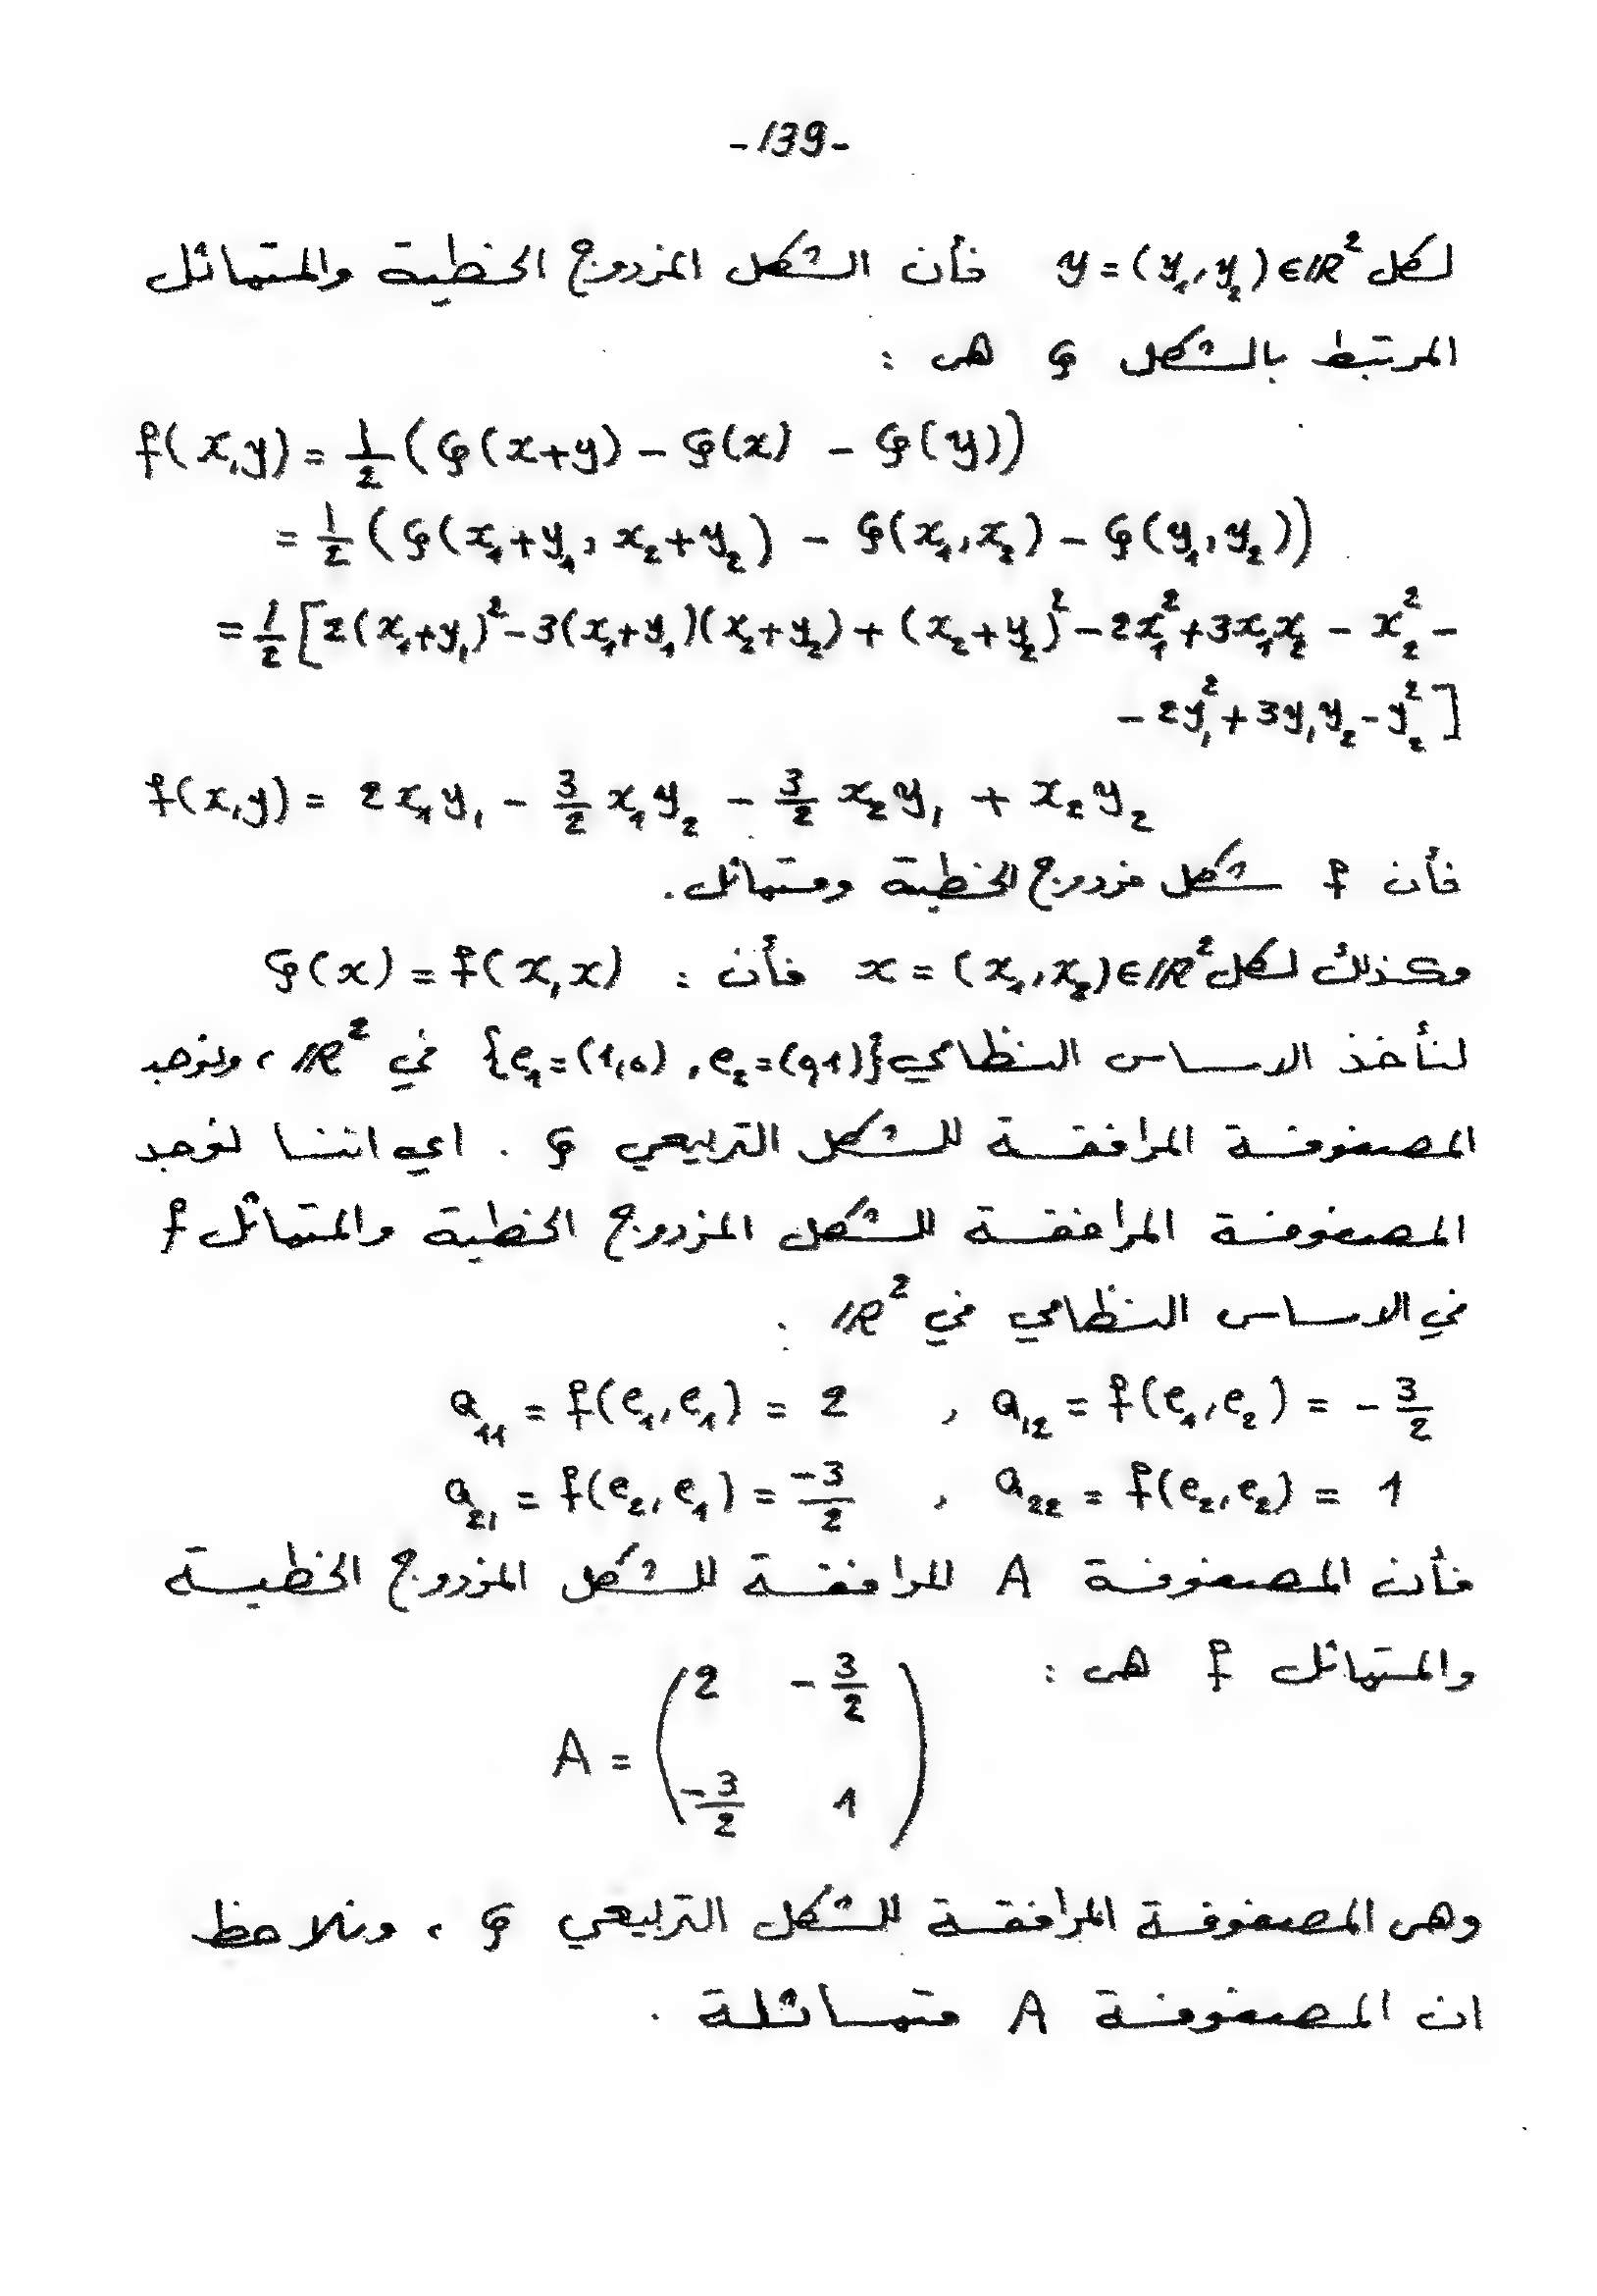 -139-
لكل y = (y₁, y₂) ∈ ℝ² فأن الشكل المزدوج الخطية والمتماثل
المرتبط بالشكل φ هي :
f(x,y) = 1/2 (φ(x+y) - φ(x) - φ(y))
= 1/2 (φ(x₁+y₁, x₂+y₂) - φ(x₁,x₂) - φ(y₁,y₂))
= 1/2 [2(x₁+y₁)² - 3(x₁+y₁)(x₂+y₂) + (x₂+y₂)² - 2x₁² + 3x₁x₂ - x₂² -
- 2y₁² + 3y₁y₂ - y₂²]
f(x,y) = 2x₁y₁ - 3/2 x₁y₂ - 3/2 x₂y₁ + x₂y₂
فأن f شكل مزدوج الخطية ومتماثل.
وكذلك لكل x = (x₁, x₂) ∈ ℝ² فأن : φ(x) = f(x,x)
لنأخذ الاساس النظامي {e₁=(1,0), e₂=(0,1)} في ℝ² ، ولنوجد
المصفوفة المرافقة للشكل التربيعي φ . اي اننا نوجد
المصفوفة المرافقة للشكل المزدوج الخطية والمتماثل f
في الاساس النظامي في ℝ² :
a₁₁ = f(e₁,e₁) = 2 , a₁₂ = f(e₁,e₂) = -3/2
a₂₁ = f(e₂,e₁) = -3/2 , a₂₂ = f(e₂,e₂) = 1
فأن المصفوفة A المرافقة للشكل المزدوج الخطية
والمتماثل f هي :
A = (2 -3/2
-3/2 1)
وهي المصفوفة المرافقة للشكل التربيعي φ ، ونلاحظ
ان المصفوفة A متماثلة .